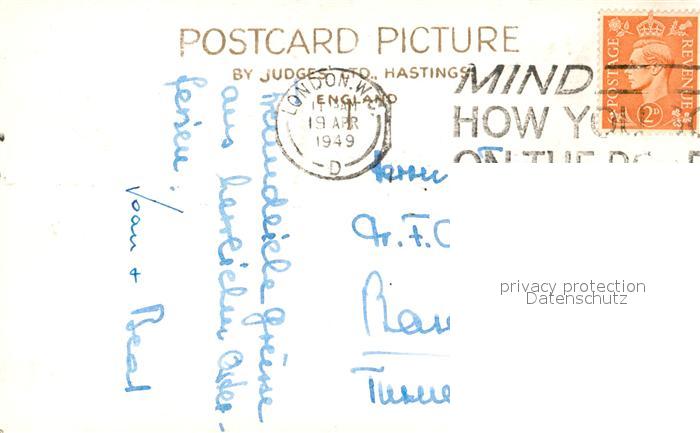 POSTCARD PICTURE
BY JUDGES' LTD., HASTINGS
ENGLAND
LONDON. W.
19 APR
1949
D
MIND
HOW YOU
ON THE
POSTAGE
REVENUE
2D
freundliche Grüsse
aus herrlichen Oster-
ferien!
+ Beat
Herrn
Dr. F.
privacy protection
Datenschutz